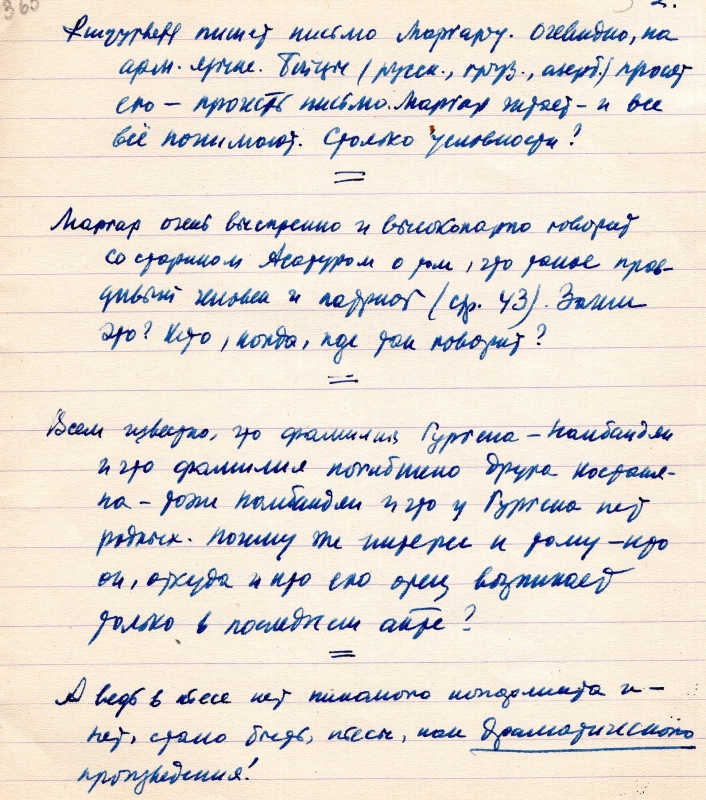 365 2.
пишет письмо Маргару. Очевидно, на
арм. языке. Бойцы (русск., груз., азерб.) просят
его – прочесть письмо. Маргар читает – и все
всё понимают. Столько условности?
Маргар очень выспренно и высокопарно говорит
со стариком Асатуром о том, что такое прав-
дивый человек и патриот (стр. 43). Зачем
это? Кто, когда, где так говорит?
Всем известно, что фамилия Гургена – Налбандян
и что фамилия погибшего друга Костаня-
на – тоже Налбандян и что у Гургена нет
родных. Почему же интерес к тому – кто
он, откуда и кто его отец возникает
только в последнем акте?
А ведь в пьесе нет никакого конфликта и –
нет, стало быть, пьесы, как драматического
произведения!